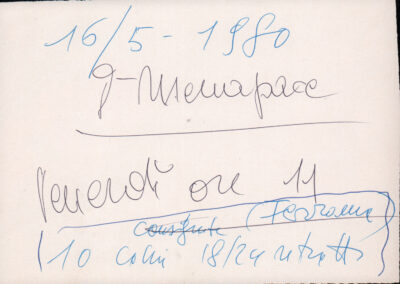 16/5 - 1980
G-Menapace
Venerdì ore 11
Consegnate (Ferrania)
10 color 18/24 ritratti